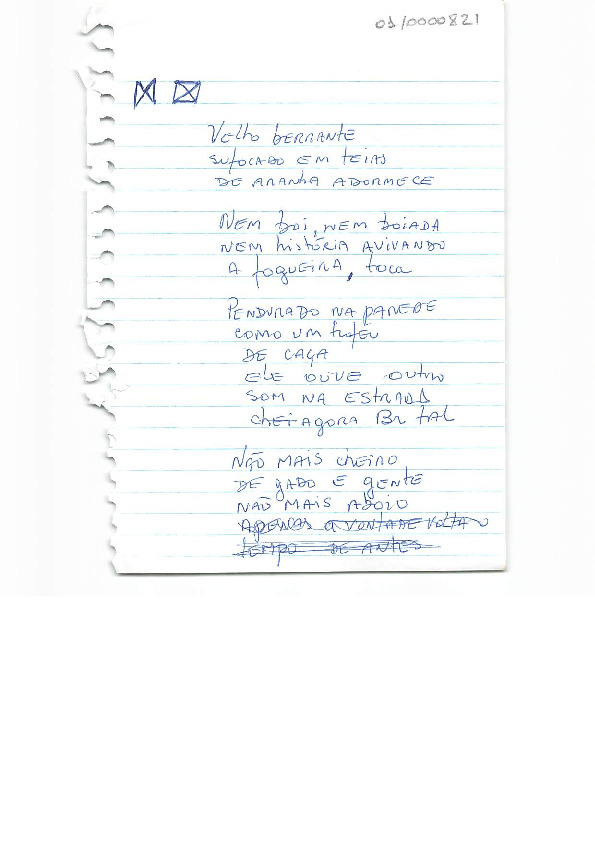 01/0000821
Velho berrante
sufocado em teias
de aranha adormece
Nem boi, nem boiada
nem história avivando
a fogueira, toca
Pendurado na parede
como um troféu
de caça
ele ouve outro
som na estrada
agora Br tal
Não mais cheiro
de gado e gente
não mais aboio
Apenas a vontade volta o
tempo de antes